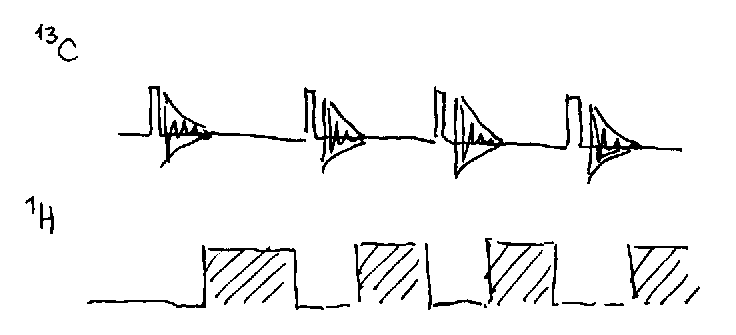 ¹³C
¹H